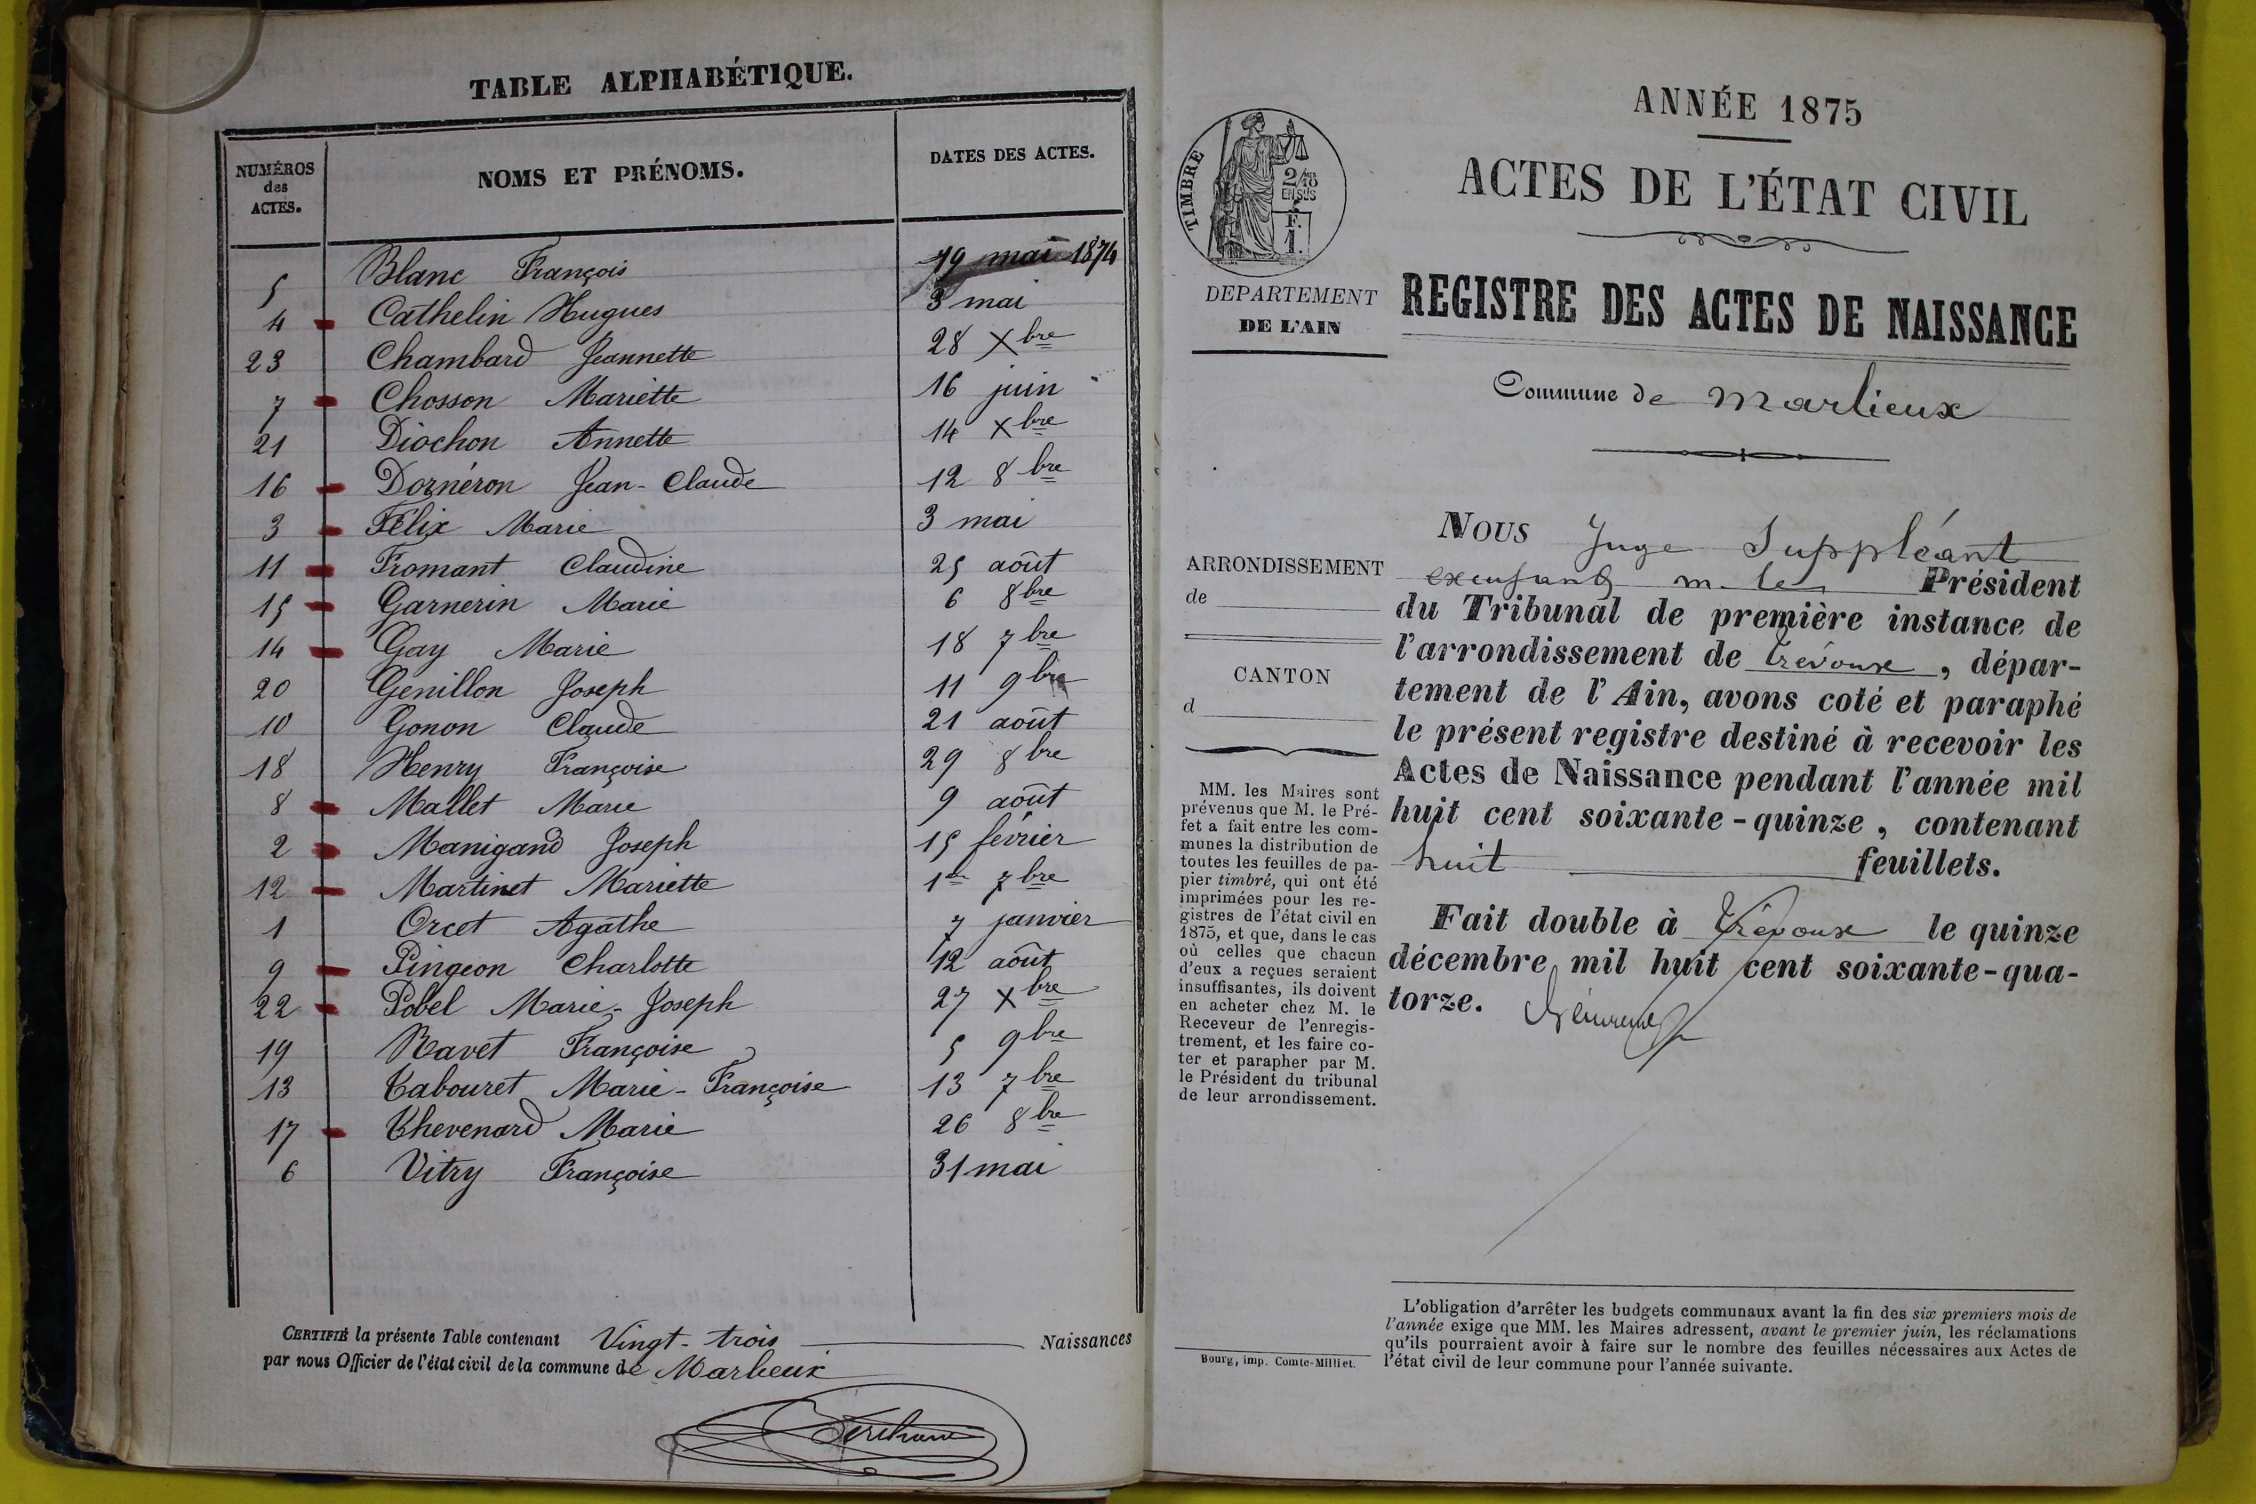 TABLE ALPHABÉTIQUE.
NUMÉROS des ACTES. NOMS ET PRÉNOMS. DATES DES ACTES.
5 Blanc François 19 mai 1874
4 Cathelin Hugues 3 mai
23 Chambard Jeannette 28 Xbre
7 Chosson Mariette 16 juin
21 Diochon Annette 14 Xbre
16 Dornéron Jean-Claude 12 8bre
3 Félix Marie 3 mai
11 Fromant Claudine 25 août
15 Garnerin Marie 6 8bre
14 Gay Marie 18 7bre
20 Genillon Joseph 11 9bre
10 Gonon Claude 21 août
18 Henry Françoise 29 8bre
8 Mallet Marie 9 août
2 Manigand Joseph 15 février
12 Martinet Mariette 1er 7bre
1 Orcet Agathe 7 janvier
9 Pingeon Charlotte 12 août
22 Pobel Marie-Joseph 27 Xbre
19 Ravet Françoise 5 9bre
13 Tabouret Marie-Françoise 13 7bre
17 Thevenard Marie 26 8bre
6 Vitry Françoise 31 mai
CERTIFIÉ la présente Table contenant Vingt-trois Naissances
par nous Officier de l'état civil de la commune de Marlieux
ANNÉE 1875
ACTES DE L'ÉTAT CIVIL
TIMBRE
2/10 EN SUS
F. 1.
DEPARTEMENT
DE L'AIN
REGISTRE DES ACTES DE NAISSANCE
Commune de Marlieux
ARRONDISSEMENT
de
CANTON
d
MM. les Maires sont
prévenus que M. le Pré-
fet a fait entre les com-
munes la distribution de
toutes les feuilles de pa-
pier timbré, qui ont été
imprimées pour les re-
gistres de l'état civil en
1875, et que, dans le cas
où celles que chacun
d'eux a reçues seraient
insuffisantes, ils doivent
en acheter chez M. le
Receveur de l'enregis-
trement, et les faire co-
ter et parapher par M.
le Président du tribunal
de leur arrondissement.
Bourg, imp. Comte-Milliet.
NOUS Juge Suppléant
m. le Président
du Tribunal de première instance de
l'arrondissement de Trévoux, dépar-
tement de l'Ain, avons coté et paraphé
le présent registre destiné à recevoir les
Actes de Naissance pendant l'année mil
huit cent soixante-quinze, contenant
huit feuillets.
Fait double à Trévoux le quinze
décembre mil huit cent soixante-qua-
torze.
L'obligation d'arrêter les budgets communaux avant la fin des six premiers mois de
l'année exige que MM. les Maires adressent, avant le premier juin, les réclamations
qu'ils pourraient avoir à faire sur le nombre des feuilles nécessaires aux Actes de
l'état civil de leur commune pour l'année suivante.